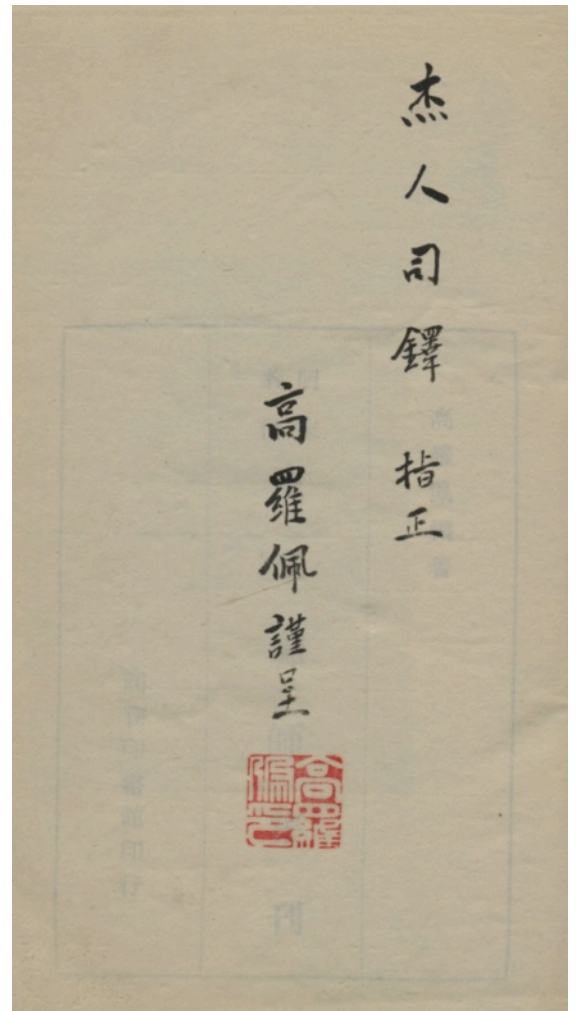 杰人司鐸 指正
高羅佩謹呈
高羅佩印